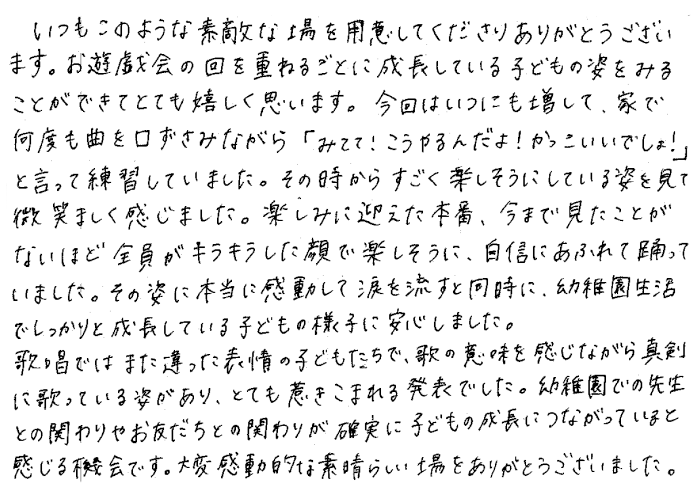 いつもこのような素敵な場を用意してくださりありがとうござい
ます。お遊戯会の回を重ねるごとに成長している子どもの姿をみる
ことができてとても嬉しく思います。今回はいつにも増して、家で
何度も曲を口ずさみながら「みてて!こうやるんだよ!かっこいいでしょ!」
と言って練習していました。その時からすごく楽しそうにしている姿を見て
微笑ましく感じました。楽しみに迎えた本番、今まで見たことが
ないほど全員がキラキラした顔で楽しそうに、自信にあふれて踊って
いました。その姿に本当に感動して涙を流すと同時に、幼稚園生活
でしっかりと成長している子どもの様子に安心しました。
歌唱ではまた違った表情の子どもたちで、歌の意味を感じながら真剣
に歌っている姿があり、とても惹きこまれる発表でした。幼稚園での先生
との関わりやお友だちとの関わりが確実に子どもの成長につながっていると
感じる機会です。大変感動的な素晴らしい場をありがとうございました。